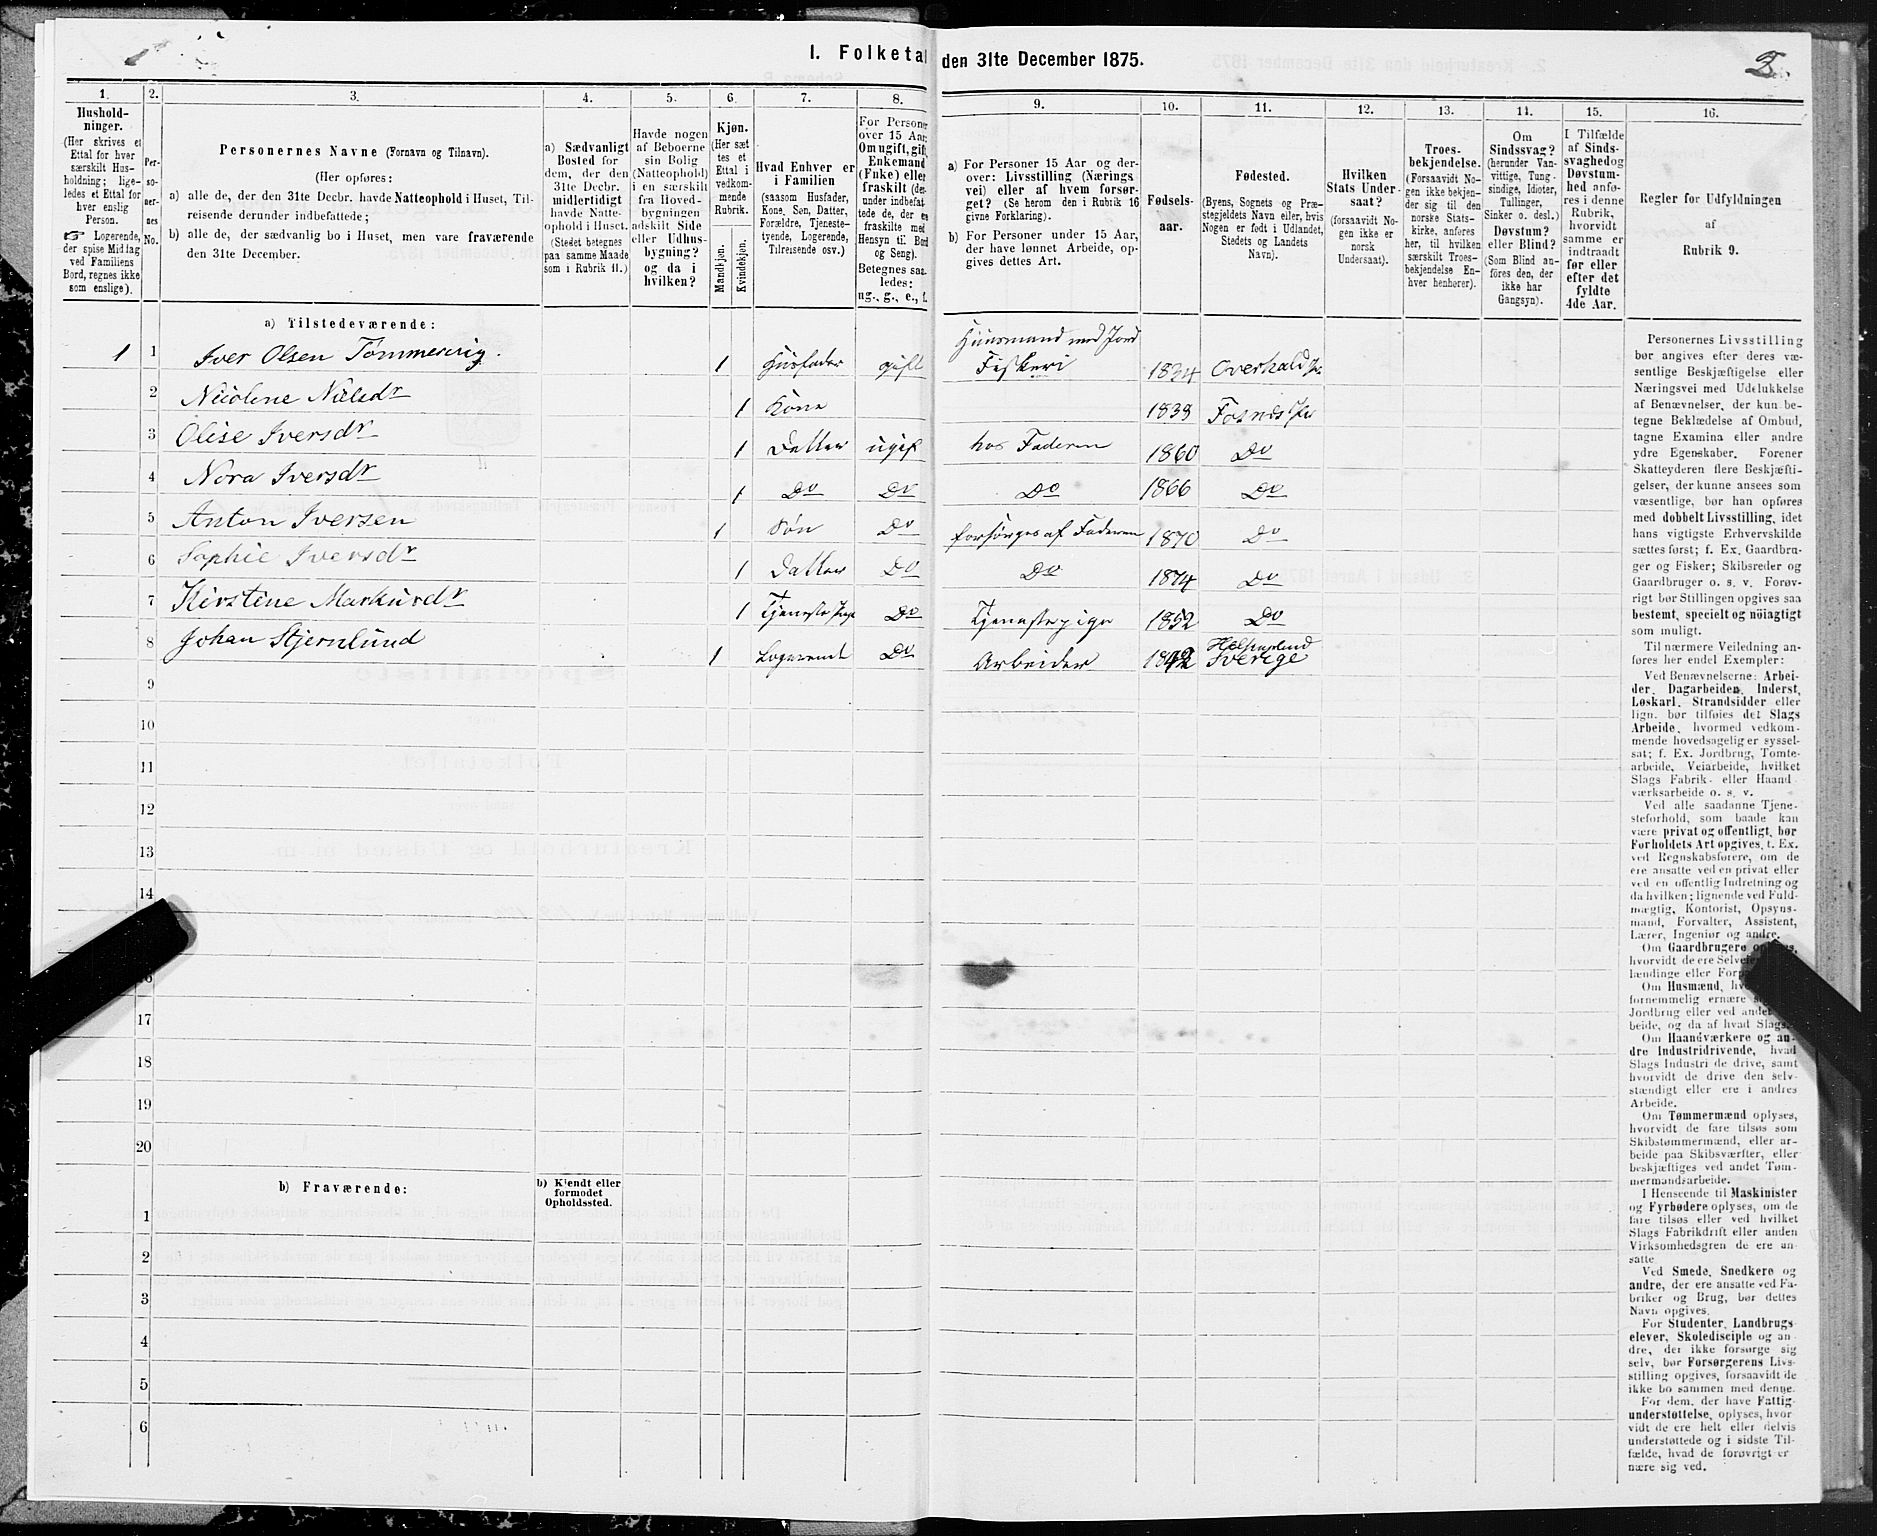 I. Folketal den 31te December 1875.
1. 2. 3. 4. 5. 6. 7. 8. 9. 10. 11. 12. 13. 14. 15. 16.
Hushold-
ninger.
(Her skrives et
Ettal for hver
særskilt Hus-
holdning; lige-
ledes et Ettal for
hver enslig
Person.
Logerende,
der spise Middag
ved Familiens
Bord, regnes ikke
som enslige).
Per-
so-
ner-
nes
No.
Personernes Navne (Fornavn og Tilnavn).
(Her opføres:
a) alle de, der den 31te Decbr. havde Natteophold i Huset, Til-
reisende derunder indbefattede;
b) alle de, der sædvanlig bo i Huset, men vare fraværende
den 31te December.
a) Sædvanligt
Bosted for
dem, der den
31te Decbr.
midlertidigt
havde Natte-
ophold i Huset.
(Stedet betegnes
paa samme Maade
som i Rubrik 11.)
Havde nogen
af Beboerne
sin Bolig
(Natteophold)
i en særskilt
fra Hoved-
bygningen
adskilt Side
eller Udhus-
bygning?
og da i
hvilken?
Kjøn.
(Her sæt
tes et
Ettal i
vedkom-
mende
Rubrik.
Mandkjøn.
Kvindekjøn.
Hvad Enhver er
i Familien
(saasom Husfader,
Kone, Søn, Datter,
Forældre, Tjeneste-
tyende, Logerende,
Tilreisende osv.)
For Personer
over 15 Aar:
Om ugift, gift,
Enkemand
(Enke) eller
fraskilt (der-
under indbefat-
tede de, der ere
fraskilte med
Hensyn til Bord
og Seng).
Betegnes saa-
ledes:
ug., g., e., f.
a) For Personer 15 Aar og der-
over: Livsstilling (Nærings
vei) eller af hvem forsør-
get? (Se herom den i Rubrik 16
givne Forklaring).
b) For Personer under 15 Aar,
der have lønnet Arbeide, op-
gives dettes Art.
Fødsels-
aar.
Fødested.
(Byens, Sognets og Præ-
stegjeldets Navn eller, hvis
Nogen er født i Udlandet,
Stedets og Landets
Navn).
Hvilken
Stats Under-
saat?
(forsaavidt No-
gen ikke er
norsk
Undersaat).
Troes-
bekjendelse.
(Forsaavidt No-
gen ikke bekjen-
der sig til den
norske Stats-
kirke, anføres
her, til hvilken
særskilt Troes-
bekjendelse En-
hver henhører).
Om
Sindssvag?
(herunder Van-
vittige, Tung-
sindige, Idioter,
Tullinger,
Sinker o. desl.)
Døvstum?
eller Blind?
(Som Blind an-
føres den, der
ikke har
Gangsyn).
I Tilfælde
af Sinds-
svaghed og
Døvstum-
hed anfø-
res i denne
Rubrik,
hvorvidt
samme er
indtraadt
før eller
efter det
fyldte
4de Aar.
Regler for Udfyldningen
af
Rubrik 9.
a) Tilstedeværende:
1 1 Iver Olsen Tømmervig. 1 Husfader gift Huusmand med Jord
Fiskeri 1834 Overhald
2 Nicoline Nilsdr 1 Kone 1838 Fosnes
3 Olise Iversdr 1 Datter ugift hos Faderen 1860 Do
4 Nora Iversdr 1 Do Do Do 1866 Do
5 Anton Iversen 1 Søn Do forsørges af Faderen 1870 Do
6 Sophie Iversdr 1 Datter Do Do 1874 Do
7 Kirstine Markusdr 1 Tjenestepige Do Tjenestepige 1852 Do
8 Johan Stjernlund 1 Logerende Do Arbeider 1842 Helsingland
Sverige
9
10
11
12
13
14
16
17
18
19
20
b) Fraværende:
b) Kjendt eller
formodet
Opholdssted.
1
2
3
4
5
6
Personernes Livsstilling
bør angives efter deres væ-
sentlige Beskjæftigelse eller
Næringsvei med Udelukkelse
af Benævnelser, der kun be-
tegne Beklædelse af Ombud,
tagne Examina eller andre
ydre Egenskaber. Forener
Skatteyderen flere Beskjæfti-
gelser, der kunne ansees som
væsentlige, bør han opføres
med dobbelt Livsstilling, idet
hans vigtigste Erhvervskilde
sættes først; f. Ex. Gaardbru-
ger og Fisker; Skibsreder og
Gaardbruger o. s. v. Forøv-
rigt bør Stillingen opgives saa
bestemt, specielt og nøiagtigt
som muligt.
Til nærmere Veiledning an-
føres her endel Exempler:
Ved Benævnelserne: Arbei-
der, Dagarbeider, Inderst,
Løskarl, Strandsidder eller
lign. bør tilføies det Slags
Arbeide, hvormed vedkom-
mende hovedsagelig er syssel-
sat; f. Ex. Jordbrug, Tomte-
arbeide, Veiarbeide, hvilket
Slags Fabrik- eller Haand-
værksarbeide o. s. v.
Ved alle saadanne Tjene-
steforhold, som baade kan
være privat og offentligt, bør
Forholdets Art opgives, f. Ex.
ved Regnskabsførere, om de
ere ansatte ved en privat eller
ved en offentlig Indretning og
da hvilken; lignende ved Fuld-
mægtig, Kontorist, Opsyns-
mand, Forvalter, Assistent,
Lærer, Ingeniør og andre.
Om Gaardbrugere
hvorvidt de ere
lændinge eller
Om Husmænd,
fornemmelig ernære
Jordbrug eller ved andet
beide, og da af hvad Slags.
Om Haandværkere og an-
dre Industridrivende, hvad
Slags Industri de drive, samt
hvorvidt de drive den selv-
stændigt eller ere i andres
Arbeide.
Om Tømmermænd oplyses,
hvorvidt de fare tilsøs som
Skibstømmermænd, eller ar-
beide paa Skibsværfter, eller
beskjæftiges ved andet Tøm-
mermandsarbeide.
I Henseende til Maskinister
og Fyrbødere oplyses, om de
fare tilsøs eller ved hvilket
Slags Fabrikdrift eller anden
Virksomhedsgren de ere an-
satte.
Ved Smede, Snedkere og
andre, der ere ansatte ved Fa-
briker og Brug, bør dettes
Navn opgives.
For Studenter, Landbrugs-
elever, Skoledisciple og an-
dre, der ikke forsørge sig
selv, bør Forsørgerens Livs-
stilling opgives, forsaavidt de
ikke bo sammen med denne.
For dem, der have Fattig-
understøttelse, oplyses, hvor-
vidt de ere helt eller delvis
understøttede og i sidste Til-
fælde, hvad de forøvrigt er-
nære sig ved.